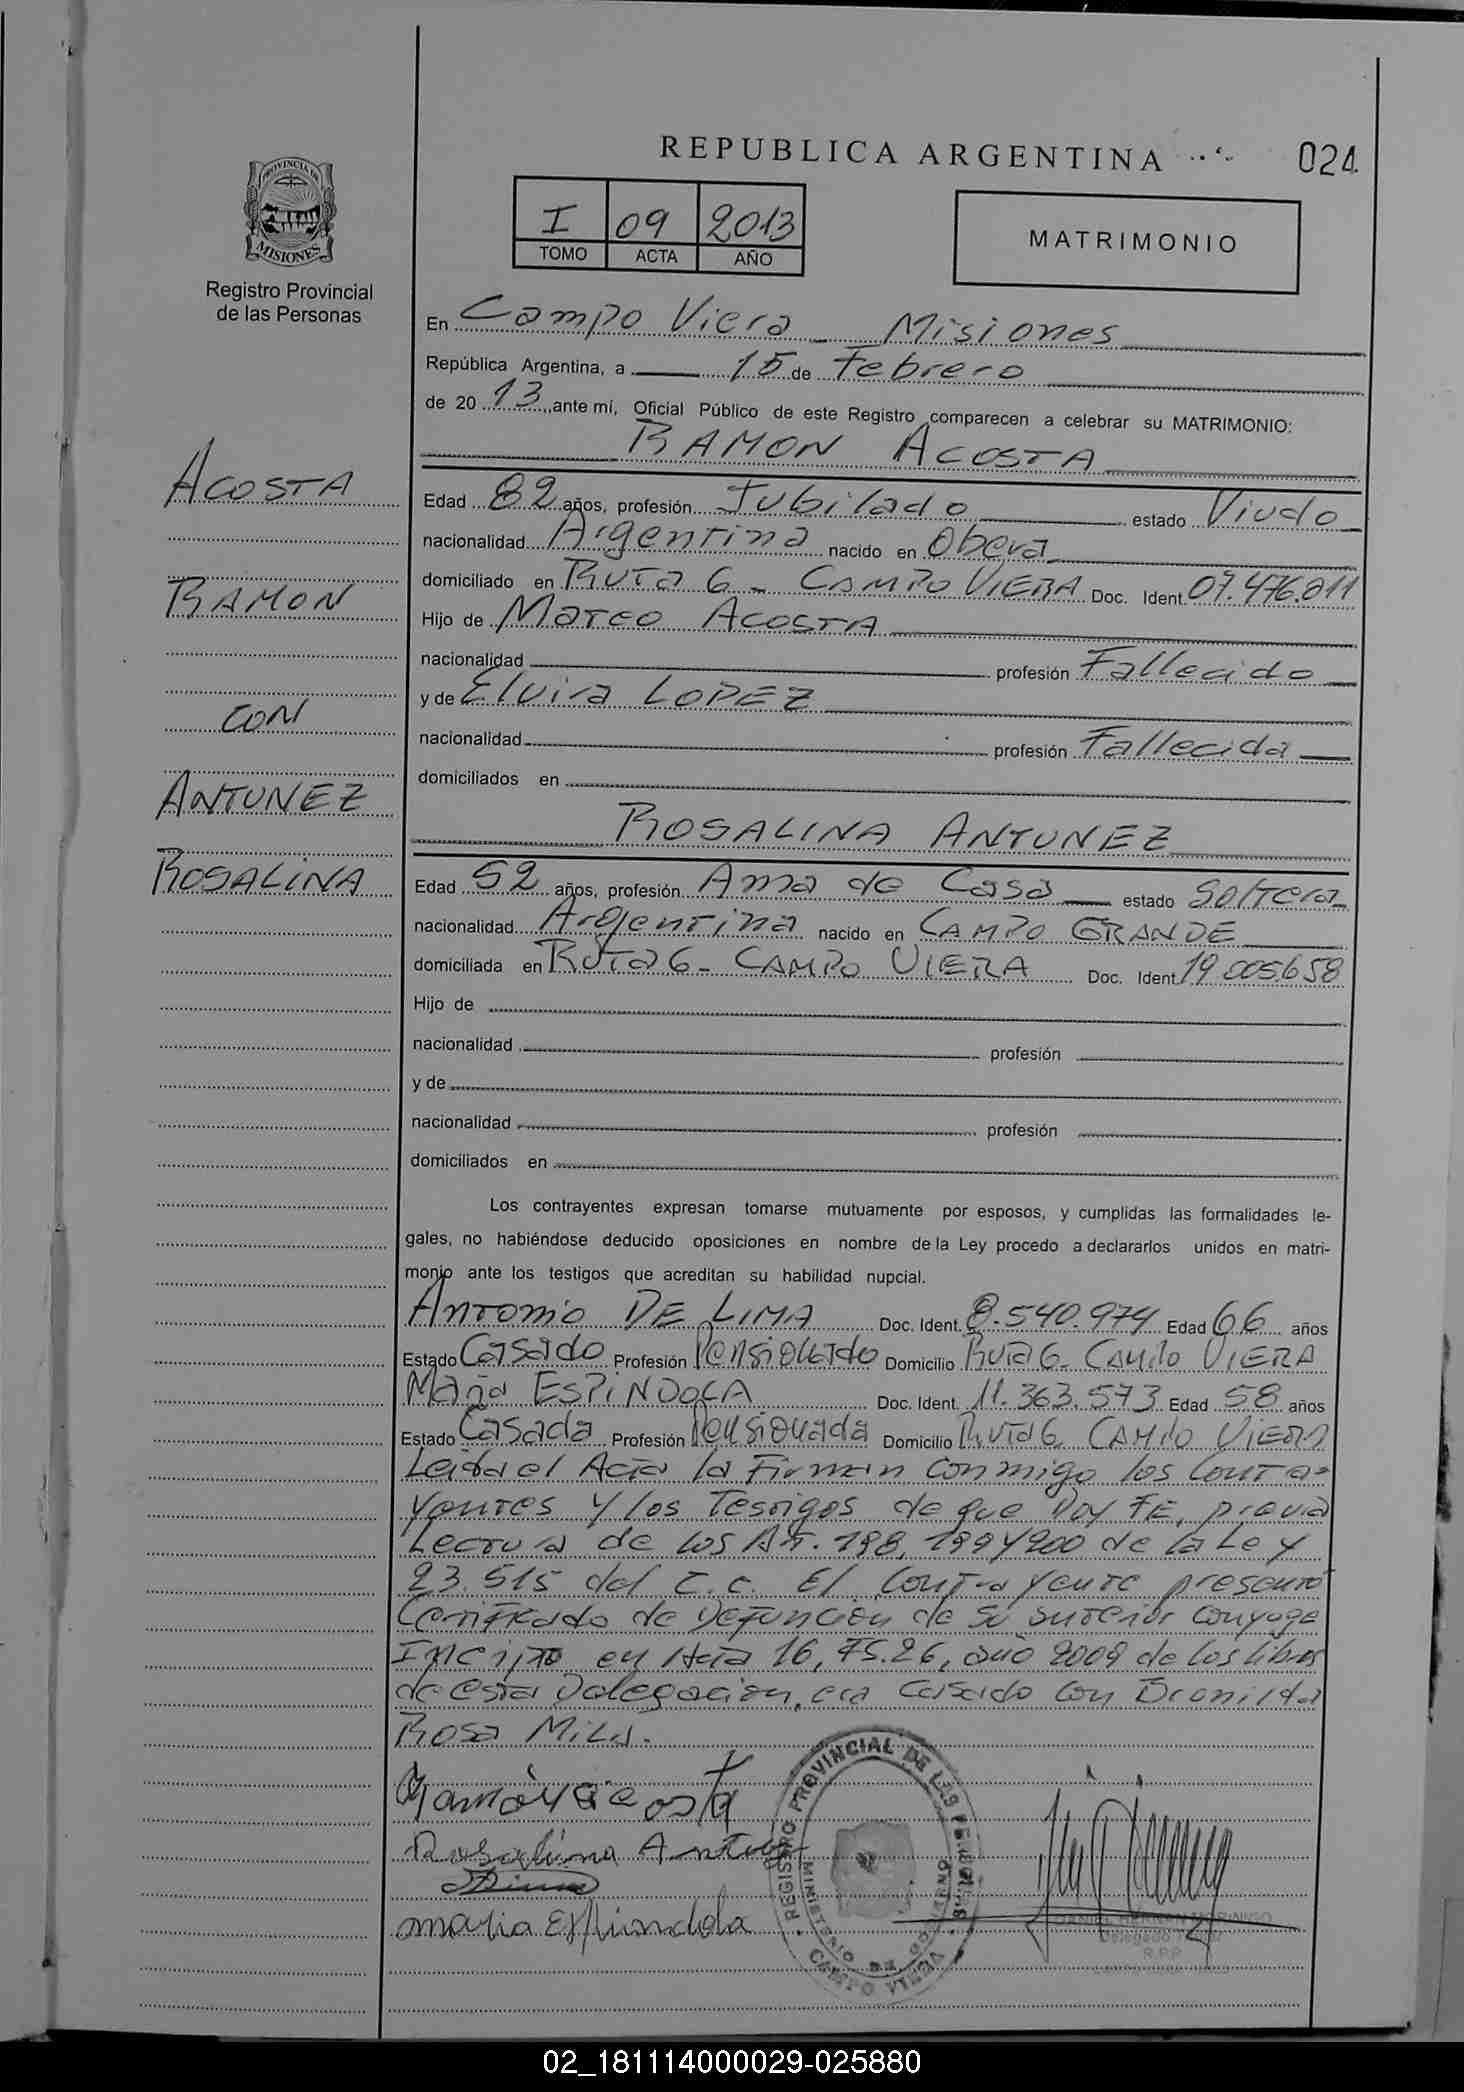 REPUBLICA ARGENTINA
024
PROVINCIA DE MISIONES
Registro Provincial
de las Personas
I 09 2013
TOMO ACTA AÑO
MATRIMONIO
En Campo Viera Misiones
República Argentina, a 15 de Febrero
de 2013, ante mí, Oficial Público de este Registro comparecen a celebrar su MATRIMONIO:
RAMON ACOSTA
Edad 82 años, profesión Jubilado estado Viudo
nacionalidad Argentina nacido en Obera
domiciliado en Ruta 6 - CAMPO VIERA Doc. Ident. 07.476.011
Hijo de Mateo ACOSTA
nacionalidad profesión Fallecido
y de Elvira LOPEZ
nacionalidad profesión Fallecida
domiciliados en
ROSALINA ANTUNEZ
Edad 52 años, profesión Ama de Casa estado Soltera
nacionalidad Argentina nacido en CAMPO GRANDE
domiciliada en Ruta 6 - CAMPO VIERA Doc. Ident. 19.005.658
Hijo de
nacionalidad profesión
y de
nacionalidad profesión
domiciliados en
ACOSTA
RAMON
CON
ANTUNEZ
ROSALINA
Los contrayentes expresan tomarse mutuamente por esposos, y cumplidas las formalidades le-
gales, no habiéndose deducido oposiciones en nombre de la Ley procedo a declararlos unidos en matri-
monio ante los testigos que acreditan su habilidad nupcial.
Antonio DE LIMA Doc. Ident. 8.540.974 Edad 66 años
Estado Casado Profesión Pensionado Domicilio Ruta 6 - CAMPO VIERA
Maria ESPINDOLA Doc. Ident. 11.363.573 Edad 58 años
Estado Casada Profesión Pensionada Domicilio Ruta 6 CAMPO VIERA
Leida el Acta la Firman conmigo los Contra-
yentes y los Testigos de que Doy FE, previa
Lectura de los Art. 198, 199 y 200 de la Ley
23.515 del C.C. El Contrayente presentó
Certificado de Defunción de su anterior conyuge
en Acta 16, Fs. 26, año 2009 de los libros
de esta Delegación, era casado con
Rosa
Ramón Acosta
Rosalina
maria Espindola
REGISTRO PROVINCIAL DE LAS PERSONAS
MINISTERIO DE GOBIERNO
CAMPO VIERA
Delegado
R.P.P.
02_181114000029-025880